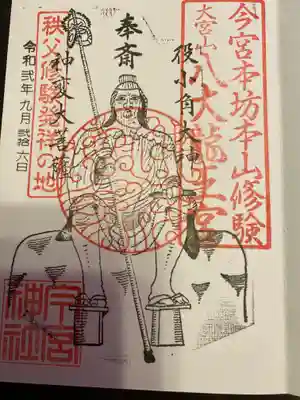 今宮本坊本山修験
大宮山
八大龍王宮
役小角大神
奉斎
神変大菩薩
秩父修験発祥の地
令和弐年九月弐拾六日
今宮神社